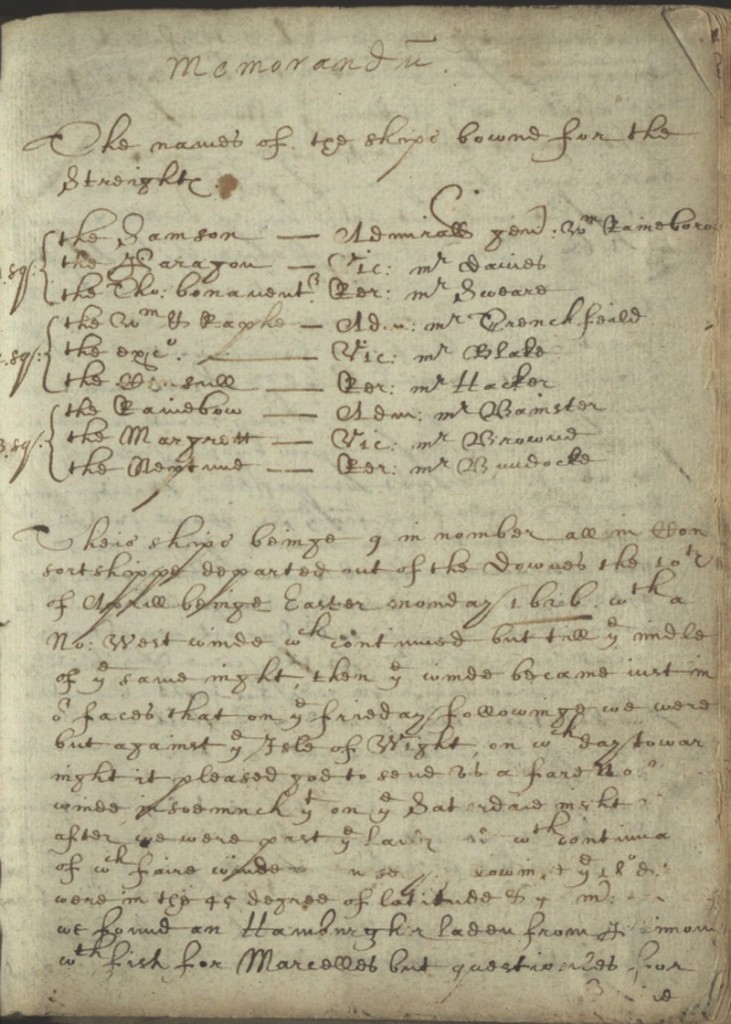 Memorandū
The names of the ships bowne for the
Streights.
the Samson — Admirall genll: Wm Raineborow
sq: the Paragon — Vic: mr Davies
the Tho: bonavent: Rer: mr Sweare
the Wm & Raphe — Adm: mr Trenchfeild
sq: the expec: — Vic: mr Blake
the — Rer: mr Hacker
the Rainebow — Adm: mr Bainster
3.sq: the Margrett — Vic: mr Browne
the Neptune — Rer: mr Buudocke
Theis ships beinge 9 in nomber all in Con
sortshippe departed out of the Downes the 10th
of Aprill beinge Easter monday 1626. wth a
No: West winde wch continued but till ye midle
of ye same night, then ye winde became iust in
or faces that on ye frieday followinge we were
but against ye Isle of Wight, on wch day towar
night it pleased god to send us a fare No:
winde insoemuch yt on ye Saterdaie night
after we were past ye wth continua
of wch faire winde ye 18o
were in the 45 degree of latitude &
we found an Hamburgher laden from
wth fish for Marcelles but for
we